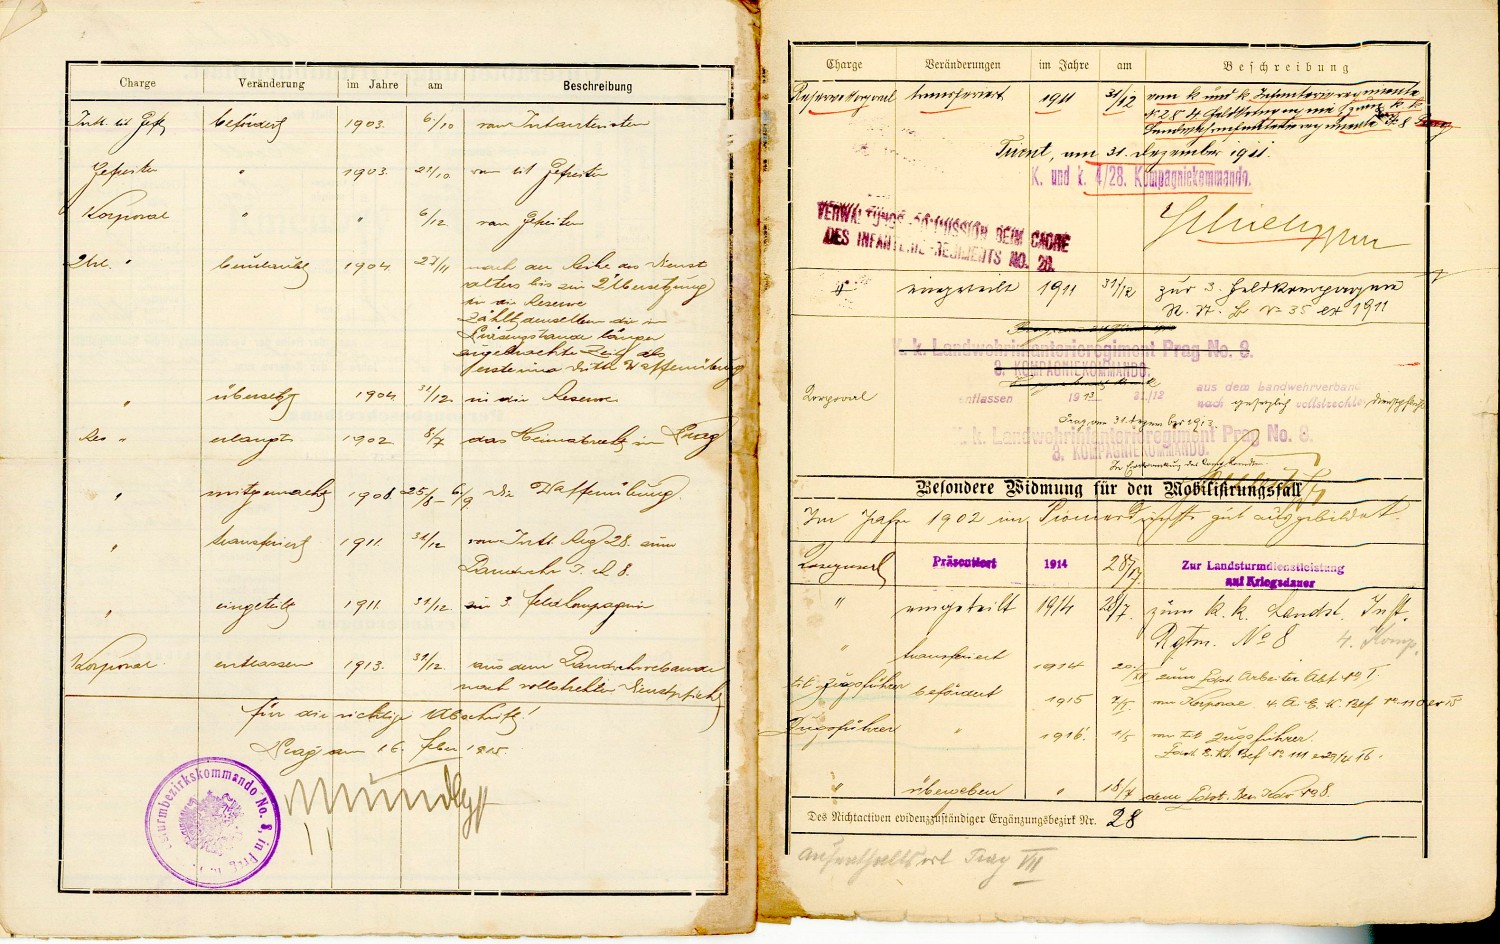 Charge Veränderung im Jahre am Beschreibung
Inft. tit Gefr. befördert 1903. 6/10 vom Infanteristen
Gefreiter " 1903. 21/10 vom tit Gefreiten
Korporal " " 6/12 vom Gefreiten
" beurlaubt 1904. 23/11 nach der Reihe des Dienst
alters bis zur Übersetzung
in die Reserve
Zählt demselben die im
länger
zugebrachte Zeit als
Waffenübung
" übersetzt 1904 31/12 in die Reserve
Res " erlangt 1902 8/7 das Heimatrecht in Prag
" mitgemacht 1908 25/8 - 6/9 die Waffenübung.
" transferiert 1911 31/12 vom Inft. Reg 28. zum
Landwehr I. R 8.
" eingeteilt 1911. 31/12 zur 3. Feldkompagnie
Korporal entlassen 1913. 31/12 aus dem Landwehrverbande
nach vollstreckter Dienstpflicht
für die richtige Abschrift!
Prag am 16. Feber 1915.
sturmbezirkskommando No. 8. in Prag
Charge Veränderungen im Jahre am Beschreibung
Reserve Korporal transferiert 1911 31/12 vom k und k Infanterieregimente
N. 28 4 Feldkompagnie zum k. k.
Landwehrinfanterieregimente Nr. 8 Prag
Trient, am 31. Dezember 1911.
K. und k. 4/28. Kompagniekommando.
VERWALTUNGS-COMMISSION BEIM CADRE
DES INFANTERIE-REGIMENTS NO. 28.
" eingeteilt 1911 31/12 zur 3. Feldkompagnie
Nr 35 ex 1911
k. k. Landwehrinfanterieregiment Prag No. 8.
3. KOMPAGNIEKOMMANDO.
Korporal entlassen 1913 31/12 aus dem Landwehrverband
nach gesetzlich vollstreckter Dienstpflicht
Prag am 31. Dezember 1913.
k. k. Landwehrinfanterieregiment Prag No. 8.
3. KOMPAGNIEKOMMANDO.
In Erkrankung des Komp. Kmdten.
Besondere Widmung für den Mobilisierungsfall
Im Jahre 1902 im Pionierdienste gut ausgebildet.
Korporal Präsentiert 1914 28/7 Zur Landsturmdienstleistung
auf Kriegsdauer
" eingeteilt 1914 28/7. zum k. k. Landst. Inft.
Rgtm. No 8 4. Komp.
" transferiert 1914 20/XII zum Ldst. Arbeiter Abt No I.
tit. Zugsführer befördert 1915 vom Korporal
Zugsführer " 1916 1/5 vom tit Zugsführer.
" übergeben " 18/X dem Ldst. Bez. Kdo No 8.
Des Nichtactiven evidenzzuständiger Ergänzungsbezirk Nr. 28
Aufenthaltsort Prag VII